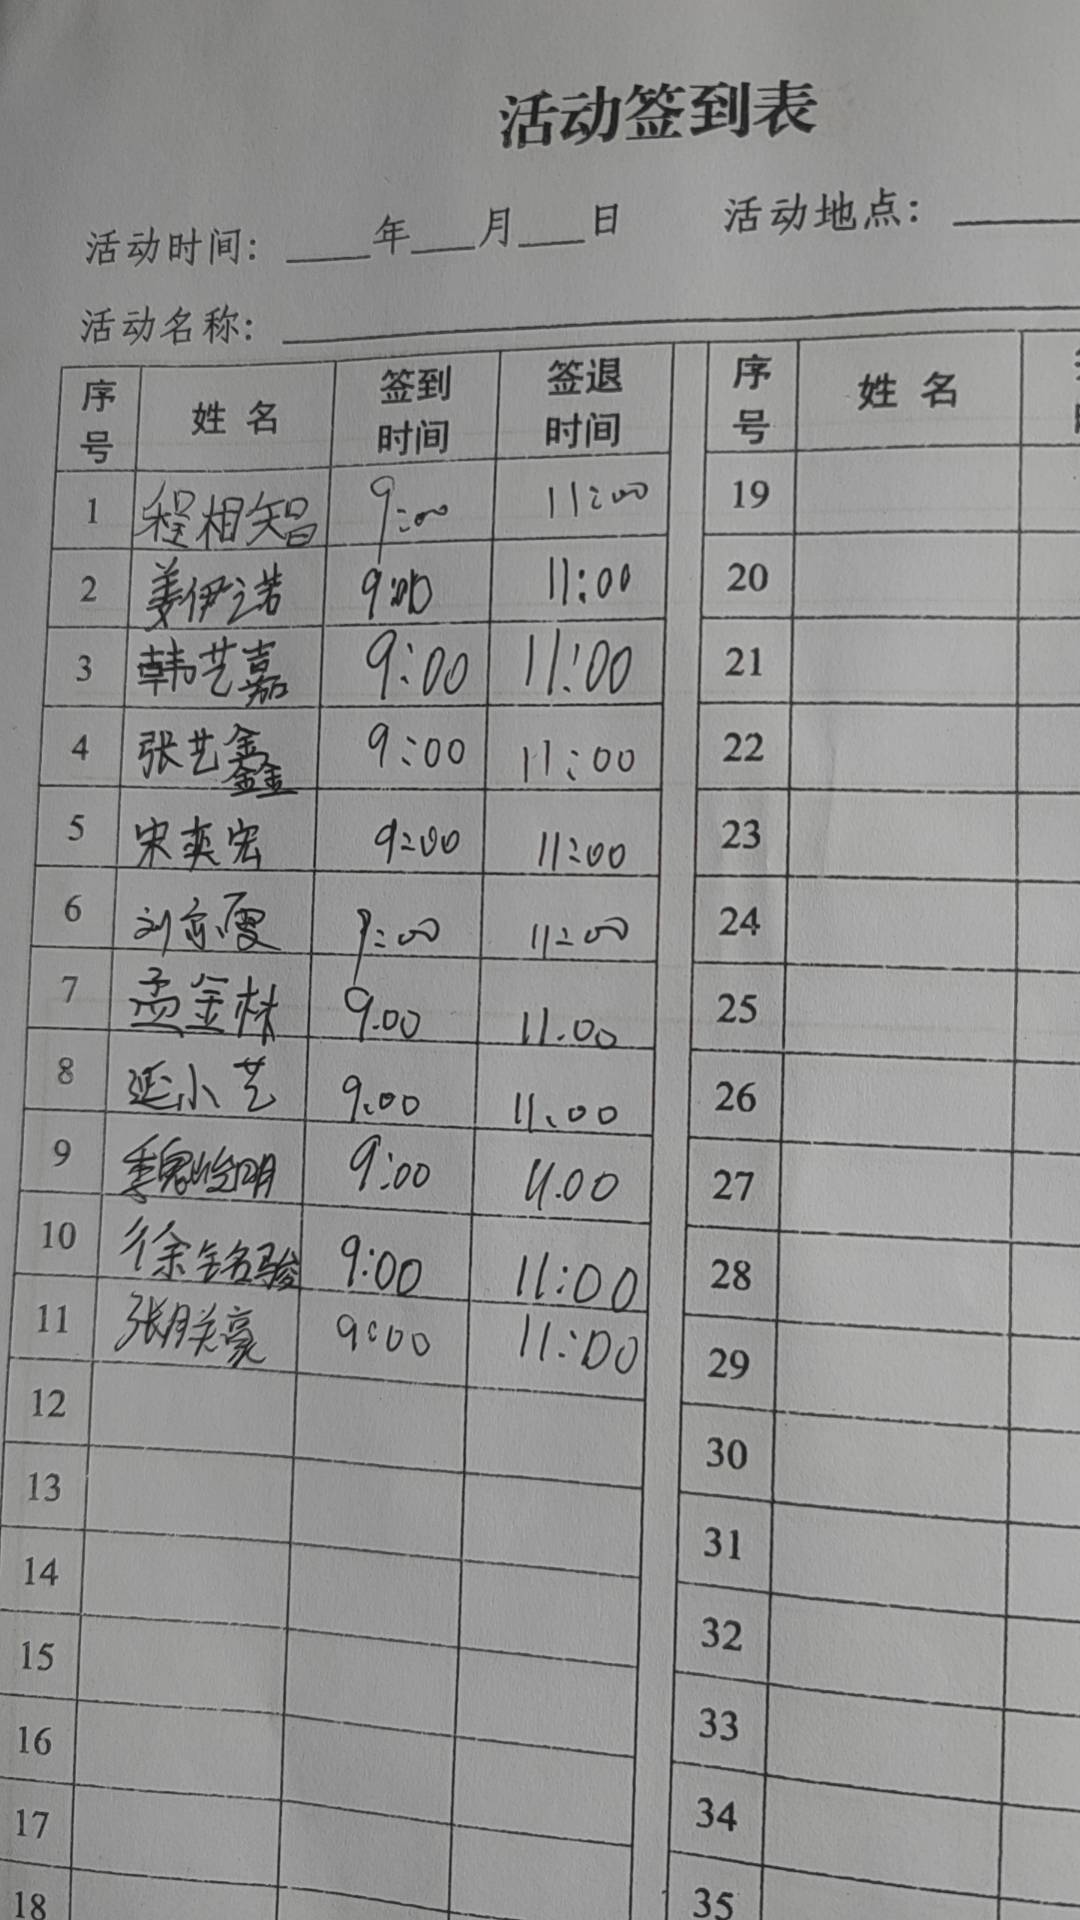 活动签到表
活动时间：____年___月___日 活动地点：
活动名称：
序号 姓名 签到时间 签退时间 序号 姓名
1 程相智 9:00 11:00 19
2 姜伊诺 9:00 11:00 20
3 韩艺嘉 9:00 11:00 21
4 张艺鑫 9:00 11:00 22
5 宋奕宏 9:00 11:00 23
6 刘亦雯 9:00 11:00 24
7 孟金林 9.00 11.00 25
8 延小艺 9.00 11.00 26
9 9:00 11.00 27
10 徐铭骏 9:00 11:00 28
11 张朕豪 9:00 11:00 29
12 30
13 31
14 32
15 33
16 34
17 35
18